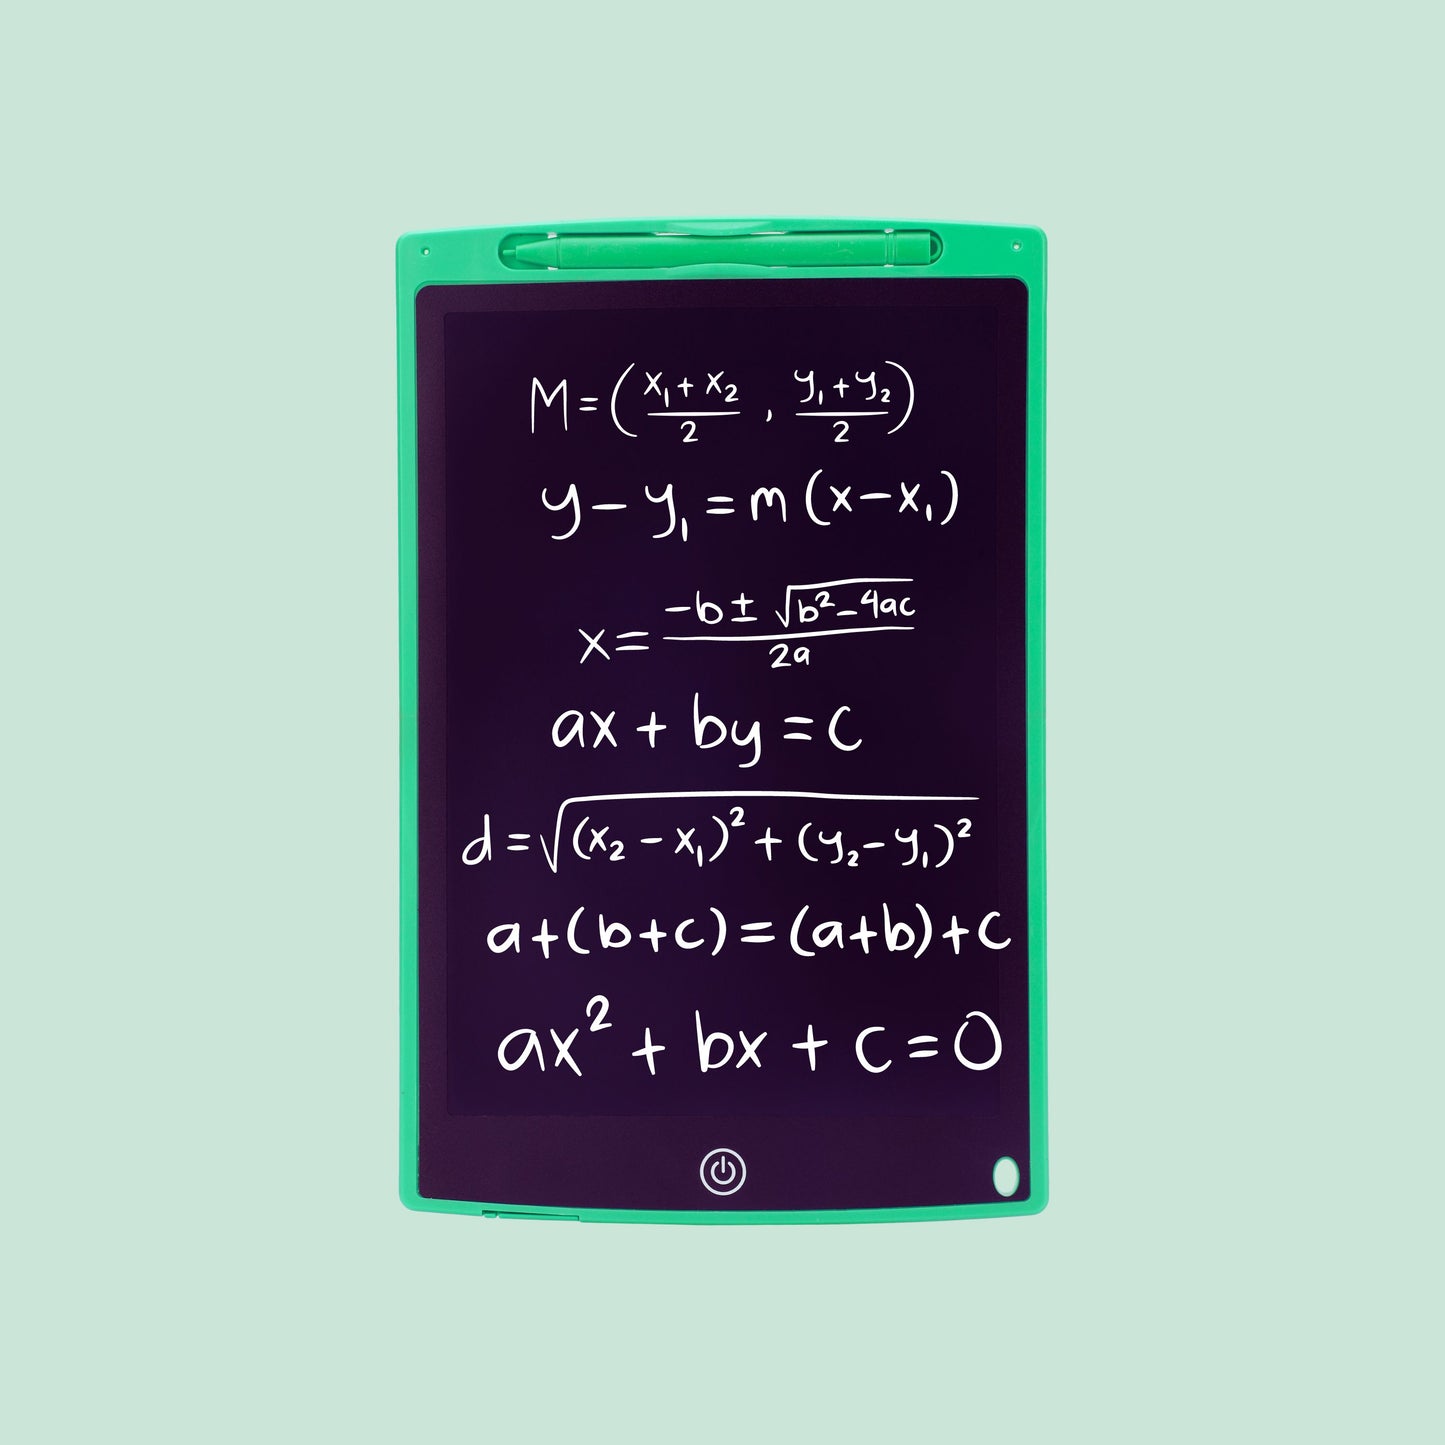 M = (x₁ + x₂ / 2 , y₁ + y₂ / 2)
y - y₁ = m (x - x₁)
x = -b ± √b² - 4ac / 2a
ax + by = c
d = √(x₂ - x₁)² + (y₂ - y₁)²
a + (b + c) = (a + b) + c
ax² + bx + c = 0